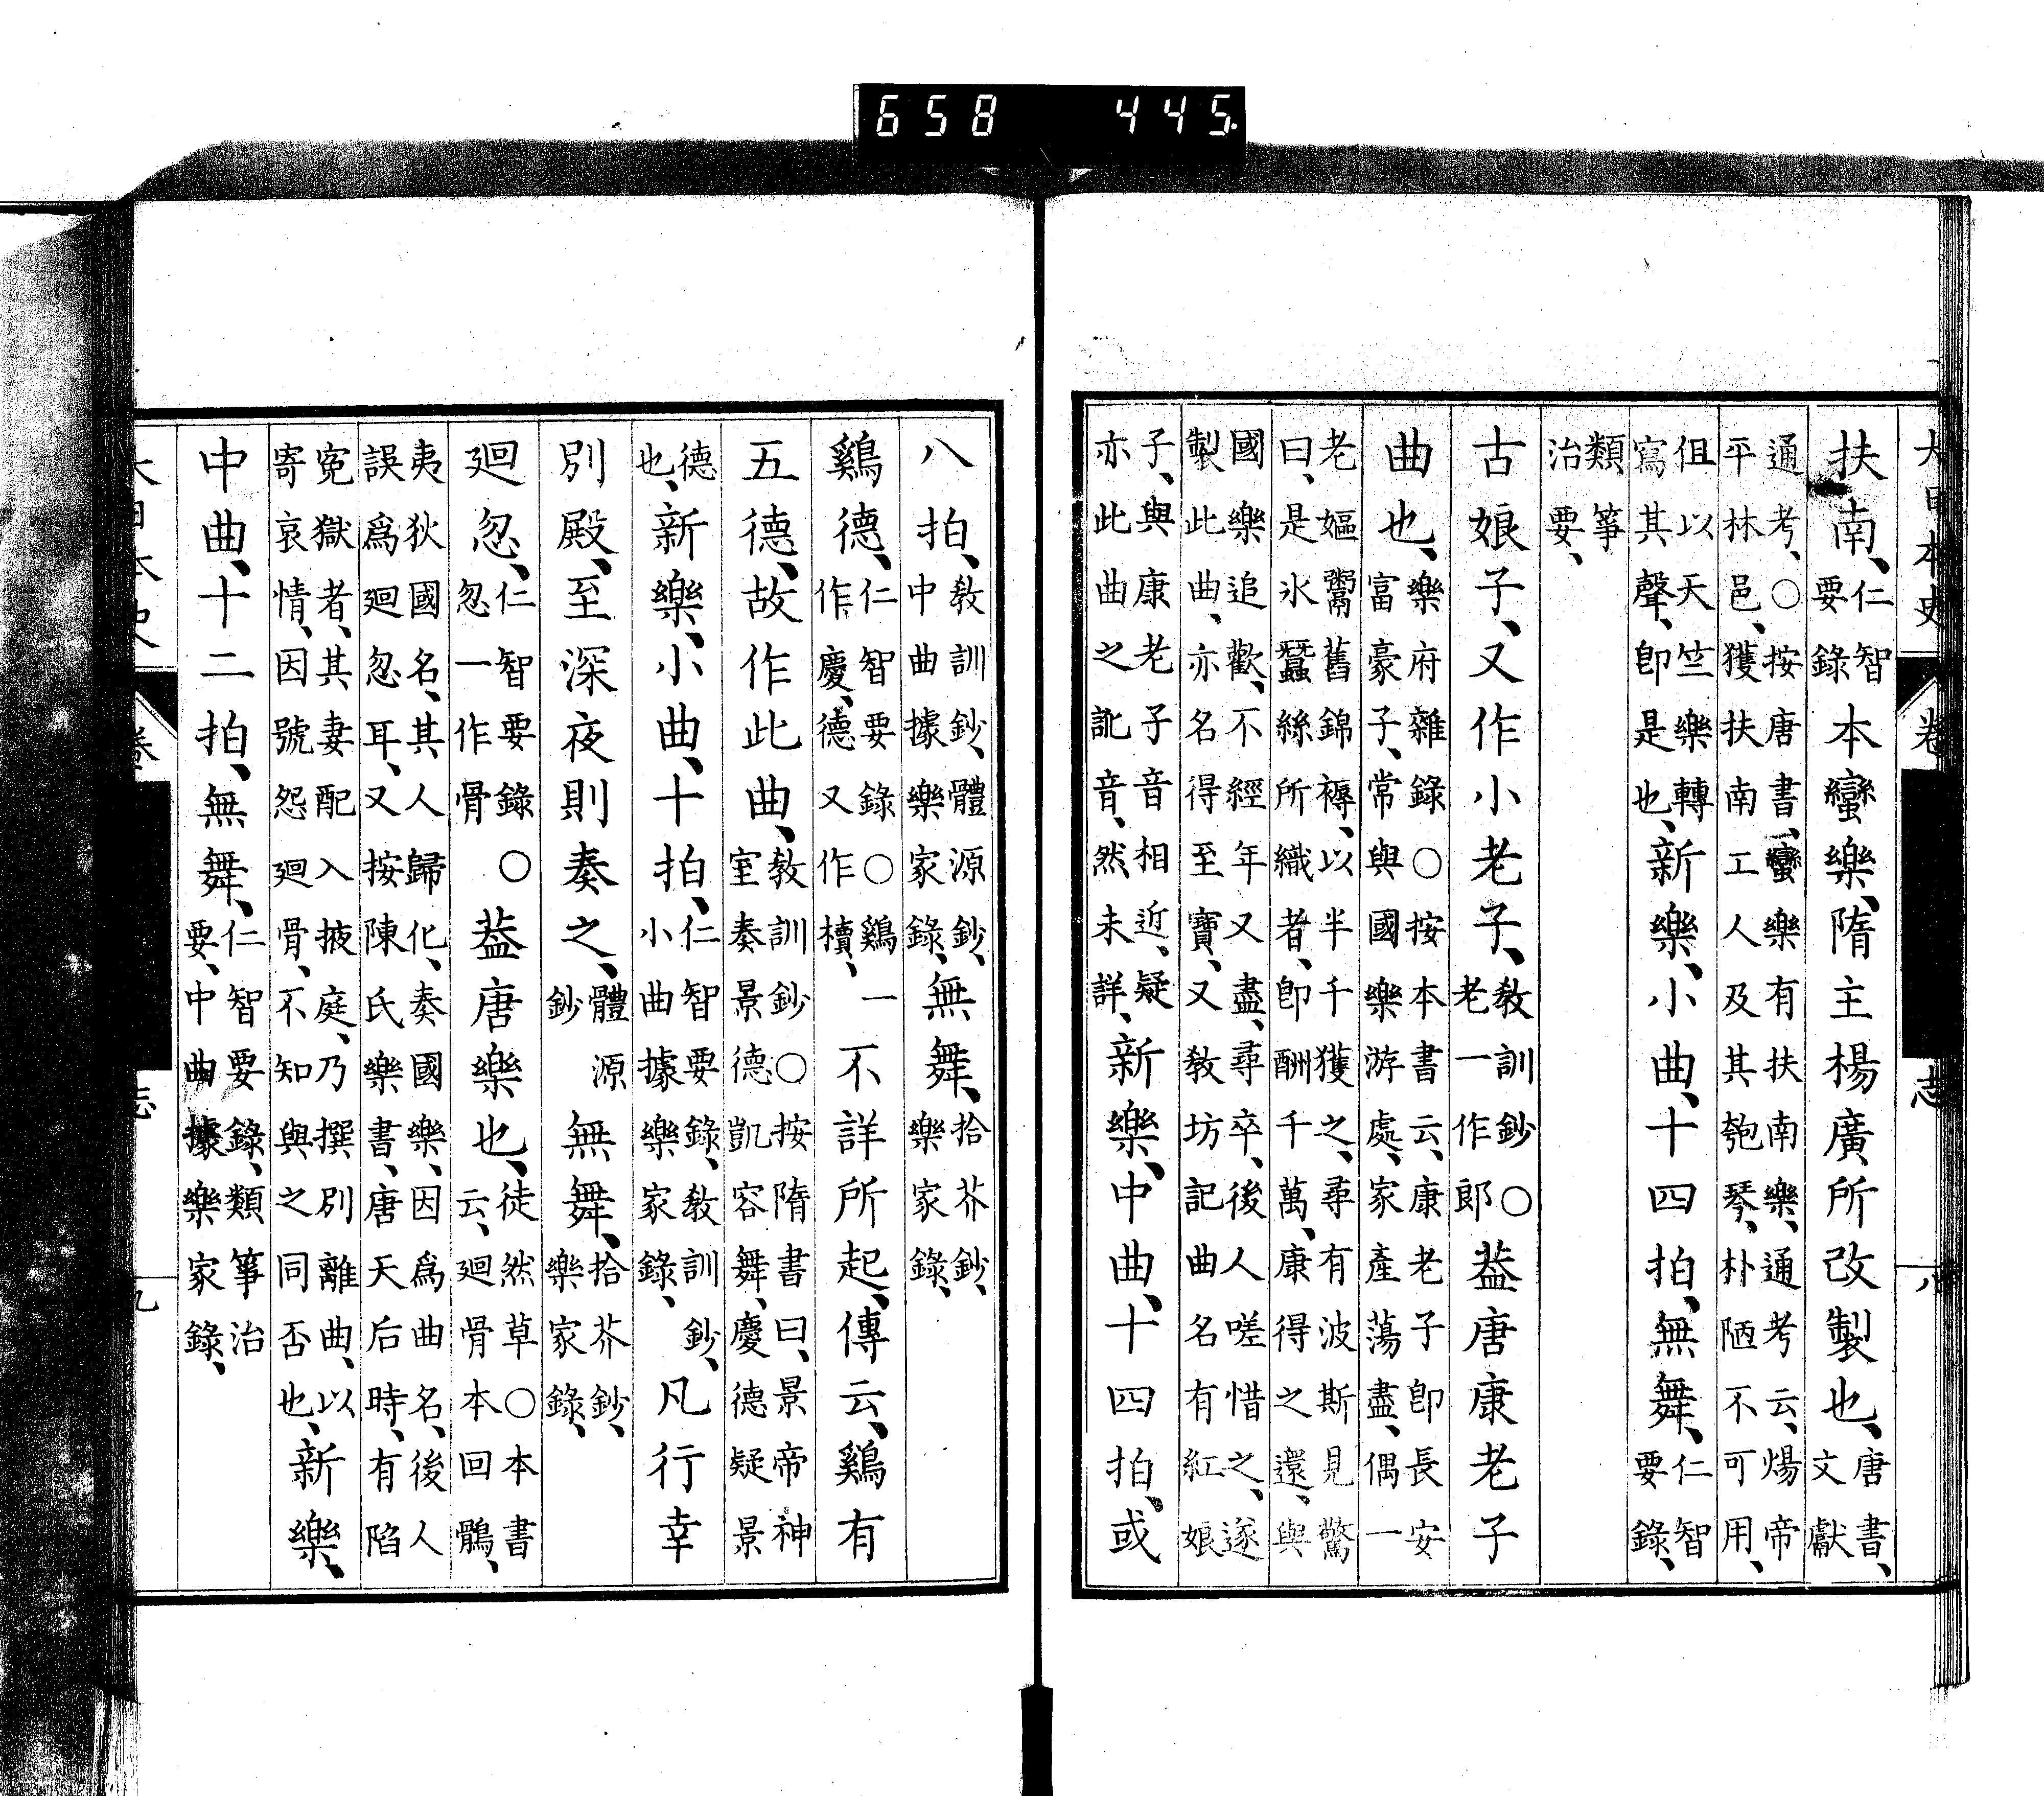 大日本史 卷 志 八
扶南、仁智要錄本蠻樂、隋主楊廣所改製也、唐書、文獻
通考、○按唐書、蠻樂有扶南樂、通考云、煬帝
平林邑、獲扶南工人及其匏琴、朴陋不可用、
但以天竺樂轉寫其聲、卽是也、新樂、小曲、十四拍、無舞、仁智要錄、
類箏治要、
古娘子、又作小老子、教訓鈔○老一作郎葢唐康老子
曲也、樂府雜錄○按本書云、康老子卽長安
富豪子、常與國樂游處、家產蕩盡、偶一
老嫗鬻舊錦褥、以半千獲之、尋有波斯見驚
曰、是氷蠶絲所織者、卽酬千萬、康得之還、與
國樂追歡、不經年又盡、尋卒、後人嗟惜之、遂
製此曲、亦名得至寶、又教坊記曲名有紅娘
子、與康老子音相近、疑亦此曲之訛音、然未詳、新樂、中曲、十四拍、或
八拍、教訓鈔、體源鈔、中曲據樂家錄、無舞、拾芥鈔、樂家錄、
鷄德、仁智要錄○鷄一作慶、德又作櫝、不詳所起、傳云、鷄有
五德、故作此曲、教訓鈔○按隋書曰、景帝神室奏景德凱容舞、慶德疑景
德也、新樂、小曲、十拍、仁智要錄、教訓鈔、小曲據樂家錄、凡行幸
別殿、至深夜則奏之、體源鈔無舞、拾芥鈔、樂家錄、
廻忽、仁智要錄○忽一作骨葢唐樂也、徒然草○本書云、廻骨本回鶻、
夷狄國名、其人歸化、奏國樂、因爲曲名、後人
誤爲廻忽耳、又按陳氏樂書、唐天后時、有陷
寃獄者、其妻配入掖庭、乃撰別離曲、以
寄哀情、因號怨廻骨、不知與之同否也、新樂、
中曲、十二拍、無舞、仁智要錄、類箏治要、中曲據樂家錄、
大日本史 卷 志 九
658 445.